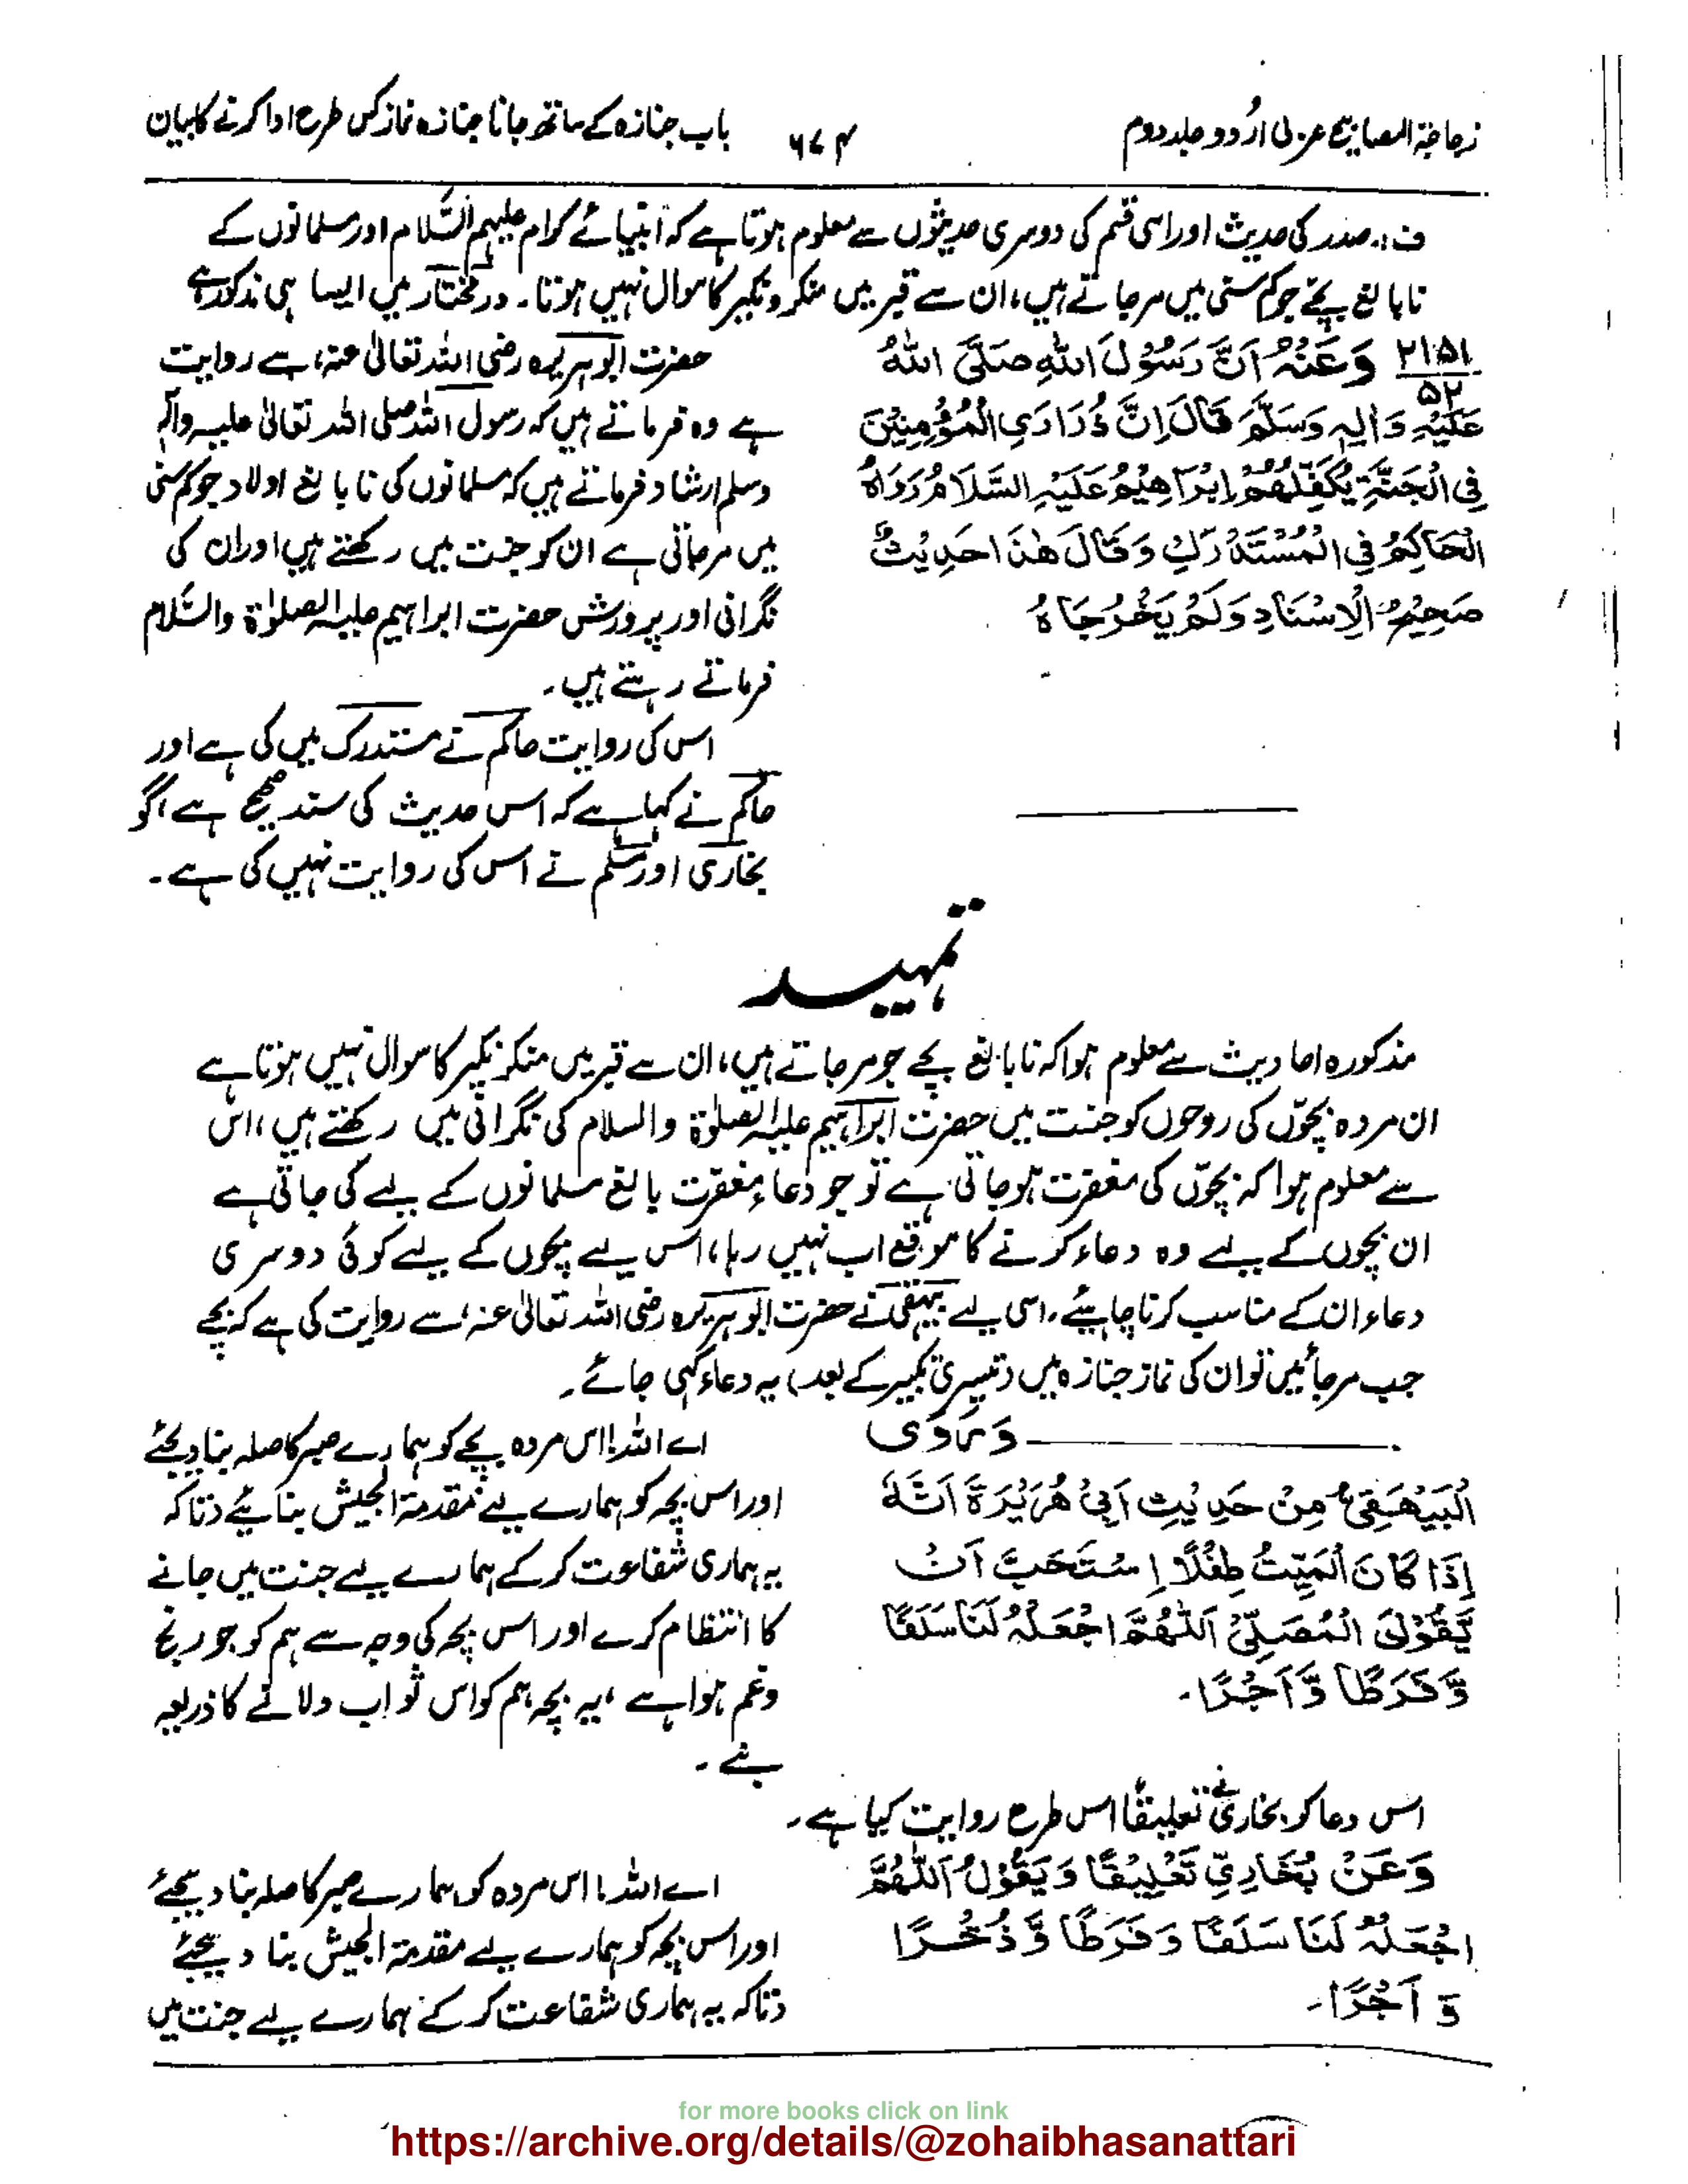 زجاجۃ المصابیح عربی اُردو جلد دوم
۶۷۴
باب جنازہ کے ساتھ جانا جنازہ نماز کس طرح ادا کرنے کا بیان
ف:۔ صدر کی حدیث اور اسی قسم کی دوسری حدیثوں سے معلوم ہوتا ہے کہ انبیائے کرام علیہم السّلام اور مسلمانوں کے
نابالغ بچّے جو کم سنی میں مرجاتے ہیں، ان سے قبر میں منکر و نکیر کا سوال نہیں ہوتا۔ درمختار میں ایسا ہی مذکور ہے
۲۱۵۱
۵۲
وَعَنْہُ اَنَّ رَسُوْلَ اللّٰہِ صَلَّی اللّٰہُ
عَلَیْہِ وَاٰلِہٖ وَسَلَّمَ قَالَ اِنَّ ذُرَارِیَ الْمُؤْمِنِیْنَ
فِی الْجَنَّۃِ یَکْفُلُھُمْ اِبْرَاھِیْمُ عَلَیْہِ السَّلَامُ رَوَاہُ
الْحَاکِمُ فِی الْمُسْتَدْرَکِ وَقَالَ ھٰذَا حَدِیْثٌ
صَحِیْحُ الْاِسْنَادِ وَلَمْ یَخْرُجَاہُ
حضرت ابوہریرہ رضی اللہ تعالیٰ عنہ، سے روایت
ہے وہ فرماتے ہیں کہ رسول اللہ صلی اللہ تعالیٰ علیہ وآلہ
وسلم ارشاد فرماتے ہیں کہ مسلمانوں کی نابالغ اولاد جو کم سنی
میں مرجاتی ہے ان کو جنت میں رکھتے ہیں اور ان کی
نگرانی اور پرورش حضرت ابراہیم علیہ الصلوٰۃ والسّلام
فرماتے رہتے ہیں۔
اس کی روایت حاکم نے مستدرک میں کی ہے اور
حاکم نے کہا ہے کہ اس حدیث کی سند صحیح ہے، گو
بخاری اور مسلم نے اس کی روایت نہیں کی ہے۔
تمہید
مذکورہ احادیث سے معلوم ہوا کہ نابالغ بچے جو مرجاتے ہیں، ان سے قبر میں منکر نکیر کا سوال نہیں ہوتا ہے
ان مردہ بچّوں کی روحوں کو جنت میں حضرت ابراہیم علیہ الصلوٰۃ والسلام کی نگرانی میں رکھتے ہیں، اس
سے معلوم ہوا کہ بچّوں کی مغفرت ہوجاتی ہے تو جو دُعاءِ مغفرت بالغ مسلمانوں کے لیے کی جاتی ہے
ان بچوں کے لیے وہ دعاء کرنے کا موقع اب نہیں رہا، اس لیے بچوں کے لیے کوئی دوسری
دعاء ان کے مناسب کرنا چاہیئے۔ اسی لیے بیہقی نے حضرت ابوہریرہ رضی اللہ تعالیٰ عنہ، سے روایت کی ہے کہ بچے
جب مرجائیں تو ان کی نماز جنازہ میں (تیسری تکبیر کے بعد) یہ دعاء کہی جائے۔
وَرَوَی
الْبَیْھَقِیُّ مِنْ حَدِیْثِ اَبِیْ ھُرَیْرَۃَ اَنَّہٗ
اِذَا کَانَ الْمَیِّتُ طِفْلًا اِسْتَحَبَّ اَنْ
یَّقُوْلَ الْمُصَلِّیْ اَللّٰھُمَّ اجْعَلْہُ لَنَا سَلَفًا
وَّفَرَطًا وَّاَجْرًا۔
اے اللہ! اس مردہ بچے کو ہمارے صبر کا صلہ بنا دیجئے
اور اس بچہ کو ہمارے لیے مقدمۃ الجیش بنائیے (تاکہ
یہ ہماری شفاعت کرکے ہمارے لیے جنت میں جانے
کا انتظام کرے اور اس بچہ کی وجہ سے ہم کو جو رنج
وغم ہوا ہے، یہ بچہ ہم کو اس ثواب دلانے کا ذریعہ
بنے۔
اس دعا کو بخاری نے تعلیقًا اس طرح روایت کیا ہے۔
وَعَنْ بُخَارِیِّ تَعْلِیْقًا وَیَقُوْلُ اَللّٰھُمَّ
اجْعَلْہُ لَنَا سَلَفًا وَفَرَطًا وَّذُخْرًا
وَّ اَجْرًا۔
اے اللہ! اس مردہ کو ہمارے صبر کا صلہ بنا دیجئے
اور اس بچہ کو ہمارے لیے مقدمۃ الجیش بنا دیجئے
(تاکہ یہ ہماری شفاعت کرکے ہمارے لیے جنت میں
for more books click on link
https://archive.org/details/@zohaibhasanattari